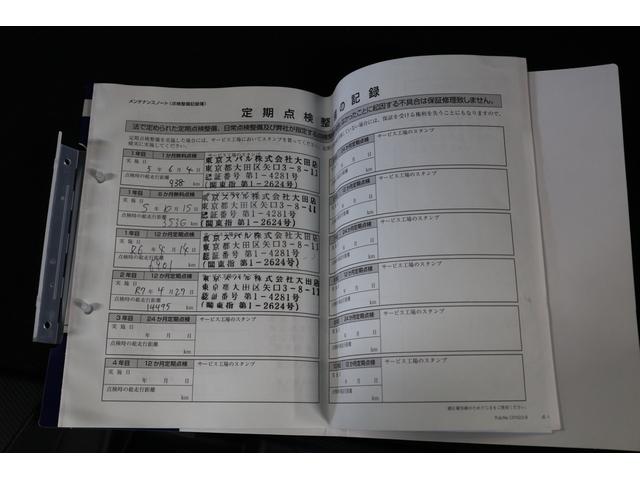 メンテナンスノート(点検整備記録簿)
定期点検整
の記録
法で定められた定期点検整備、日常点検整備及び弊社が指定する
ったことに起因する不具合は保証修理致しません。
定期点検整備を実施した場合には、サービス工場においてスタンプを
確実に実施してください。
いない場合には、保証を受ける権利を失うことにもなりますので、
1年目 1か月無料点検
実施日
5年6月4日
点検時の総走行距離
938 km
東京スバル株式会社大田店
東京都大田区矢口3-8-11
認証番号 第1-4281号
(関東指 第1-2624号)
1年目 6か月無料点検
実施日
5年10月15日
点検時の総走行距離
km
東京スバル株式会社大田店
東京都大田区矢口3-8-11
認証番号 第1-4281号
(関東指 第1-2624号)
1年目 12か月定期点検
実施日
R6年4月14日
点検時の総走行距離
km
東京スバル株式会社大田店
東京都大田区矢口3-8-11
認証番号 第1-4281号
(関東指 第1-2624号)
2年目 12か月定期点検
実施日
R7年4月27日
点検時の総走行距離
14495 km
東京スバル株式会社大田店
東京都大田区矢口3-8-11
認証番号 第1-4281号
(関東指 第1-2624号)
3年目 24か月定期点検
実施日
年 月 日
点検時の総走行距離
km
サービス工場のスタンプ
4年目 12か月定期点検
実施日
年 月 日
点検時の総走行距離
km
サービス工場のスタンプ
サービス工場のスタンプ
サービス工場のスタンプ
サービス工場のスタンプ
サービス工場のスタンプ
サービス工場のスタンプ
サービス工場のスタンプ